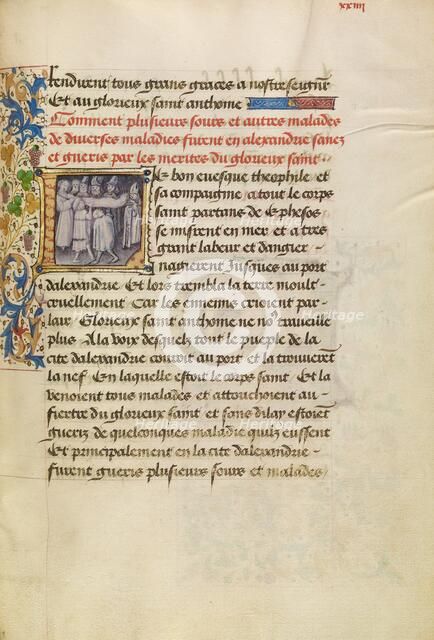 xxiiii
Rendirent tous grans graces a nostre seignr
Et au glorieux saint anthome
Comment plusieurs sours et autres malades
de diverses maladies furent en alexandrie sanez
et gueris par les merites du glorieux saint
Le bon evesque theophile et
sa compaignie a tout le corps
saint partans de Ephesos
se misrent en mer et a tres
grant labeur et dangier
nagierent Jusques au port
dalexandrie Et lors trembla la terre moult
cruellement Car les ennemis crioient par
lair Glorieux saint anthome ne no traveille
plus A la voix desquelz tout le pueple de la
cite dalexandrie couroit au port et la trouverent
la nef En laquelle estoit le corps saint Et la
venoient tous malades et attouchoient au
fiertre du glorieux saint et sans dilay estoiet
gueriz de quelconques maladie quilz eussent
Et principalement en la cite dalexandrie
furent gueris plusieurs sours et malades
Heritage Heritage Heritage